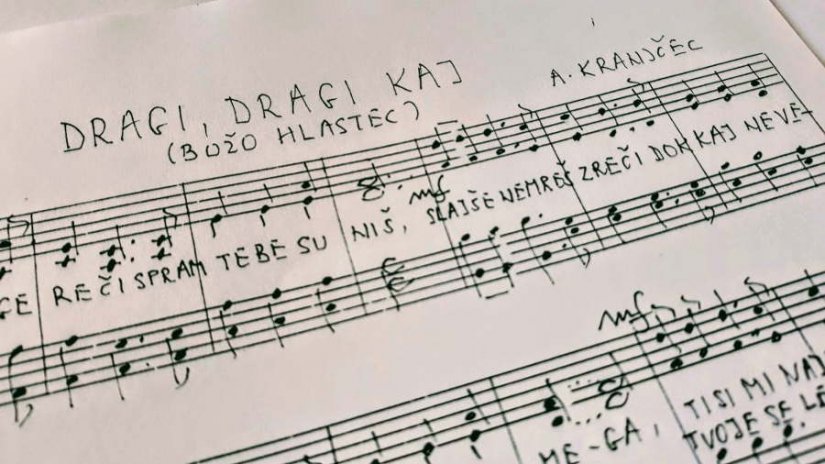 DRAGI, DRAGI KAJ
A. KRANJČEC
(BOŽO HLASTEC)
mf
GE REČI SPRAM TEBE SU NIŠ, SLAJŠE NEMREŠ ZREČI DOK KAJ NE VE-
mf
ME-GA, TI SI MI NAJ
TVOJE SE LE